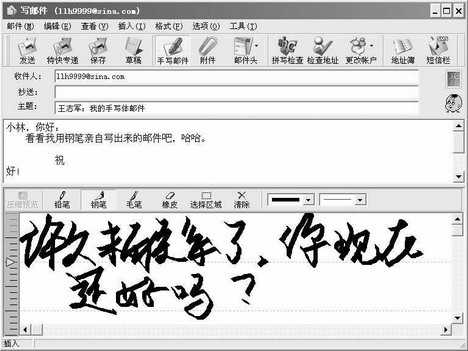 写邮件 (llh9999@sina.com)
邮件(M) 编辑(E) 查看(V) 插入(I) 格式(F) 选项(O) 工具(T)
发送 特快专递 保存 草稿 手写邮件 附件 邮件头 拼写检查 检查地址 更改帐户 地址簿 短信栏
收件人: llh9999@sina.com
抄送:
主题: 王志军：我的手写体邮件
小林，你好：
看看我用钢笔亲自写出来的邮件吧，哈哈。
祝
好！
压缩预览 铅笔 钢笔 毛笔 橡皮 选择区域 清除
许久未联系了，你现在
还好吗？
插入